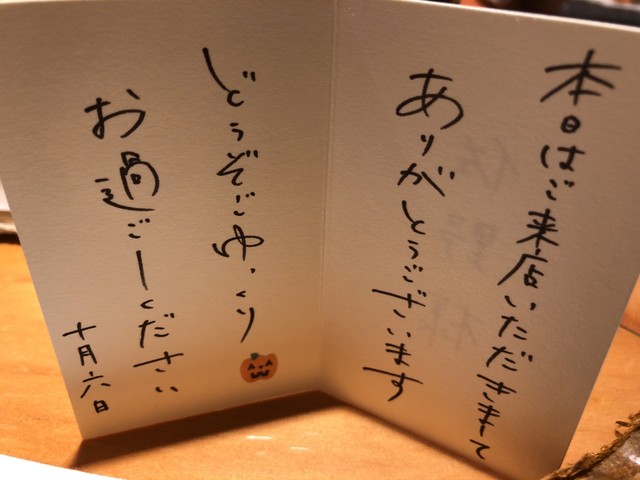 本日はご来店いただきまして
ありがとうございます
どうぞごゆっくり
お過ごしください
十月六日